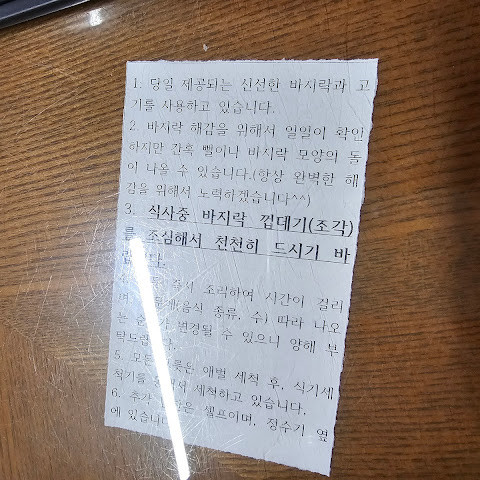 1. 당일 제공되는 신선한 바지락과 고
기를 사용하고 있습니다.
2. 바지락 해감을 위해서 일일이 확인
하지만 간혹 뻘이나 바지락 모양의 돌
이 나올 수 있습니다.(항상 완벽한 해
감을 위해서 노력하겠습니다^^)
3. 식사중 바지락 껍데기(조각)
를 조심해서 천천히 드시기 바
랍니다.
즉시 조리하여 시간이 걸리
며 (음식 종류, 수) 따라 나오
는 변경될 수 있으니 양해 부
탁드립니다.
5. 모든 그릇은 애벌 세척 후, 식기세
척기를 세척하고 있습니다.
6. 추가 셀프이며, 정수기 옆
에 있습니다